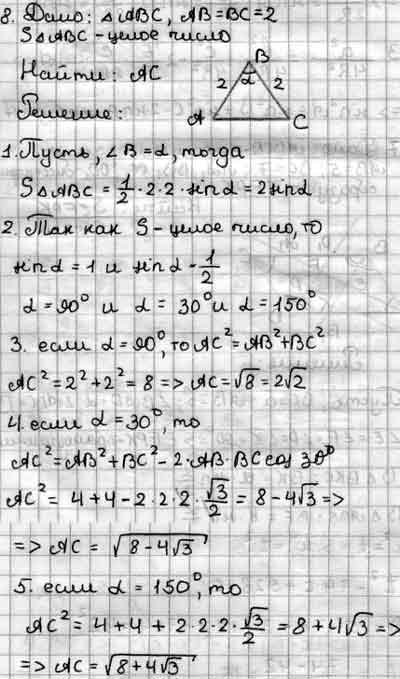 8. Дано: △ABC, AB=BC=2
S△ABC - целое число
Найти: AC
Решение:
B
2 α 2
A C
1. Пусть, ∠B=α, тогда
S△ABC = 1/2 · 2 · 2 · sin α = 2 sin α
2. Так как S - целое число, то
sin α = 1 и sin α - 1/2
α = 90° и α = 30° и α = 150°
3. если α = 90°, то AC² = AB² + BC²
AC² = 2² + 2² = 8 => AC = √8 = 2√2
4. если α = 30°, то
AC² = AB² + BC² - 2 · AB · BC cos 30°
AC² = 4 + 4 - 2 · 2 · 2 · √3/2 = 8 - 4√3 =>
=> AC = √(8 - 4√3)
5. если α = 150°, то
AC² = 4 + 4 + 2 · 2 · 2 · √3/2 = 8 + 4√3 =>
=> AC = √(8 + 4√3)